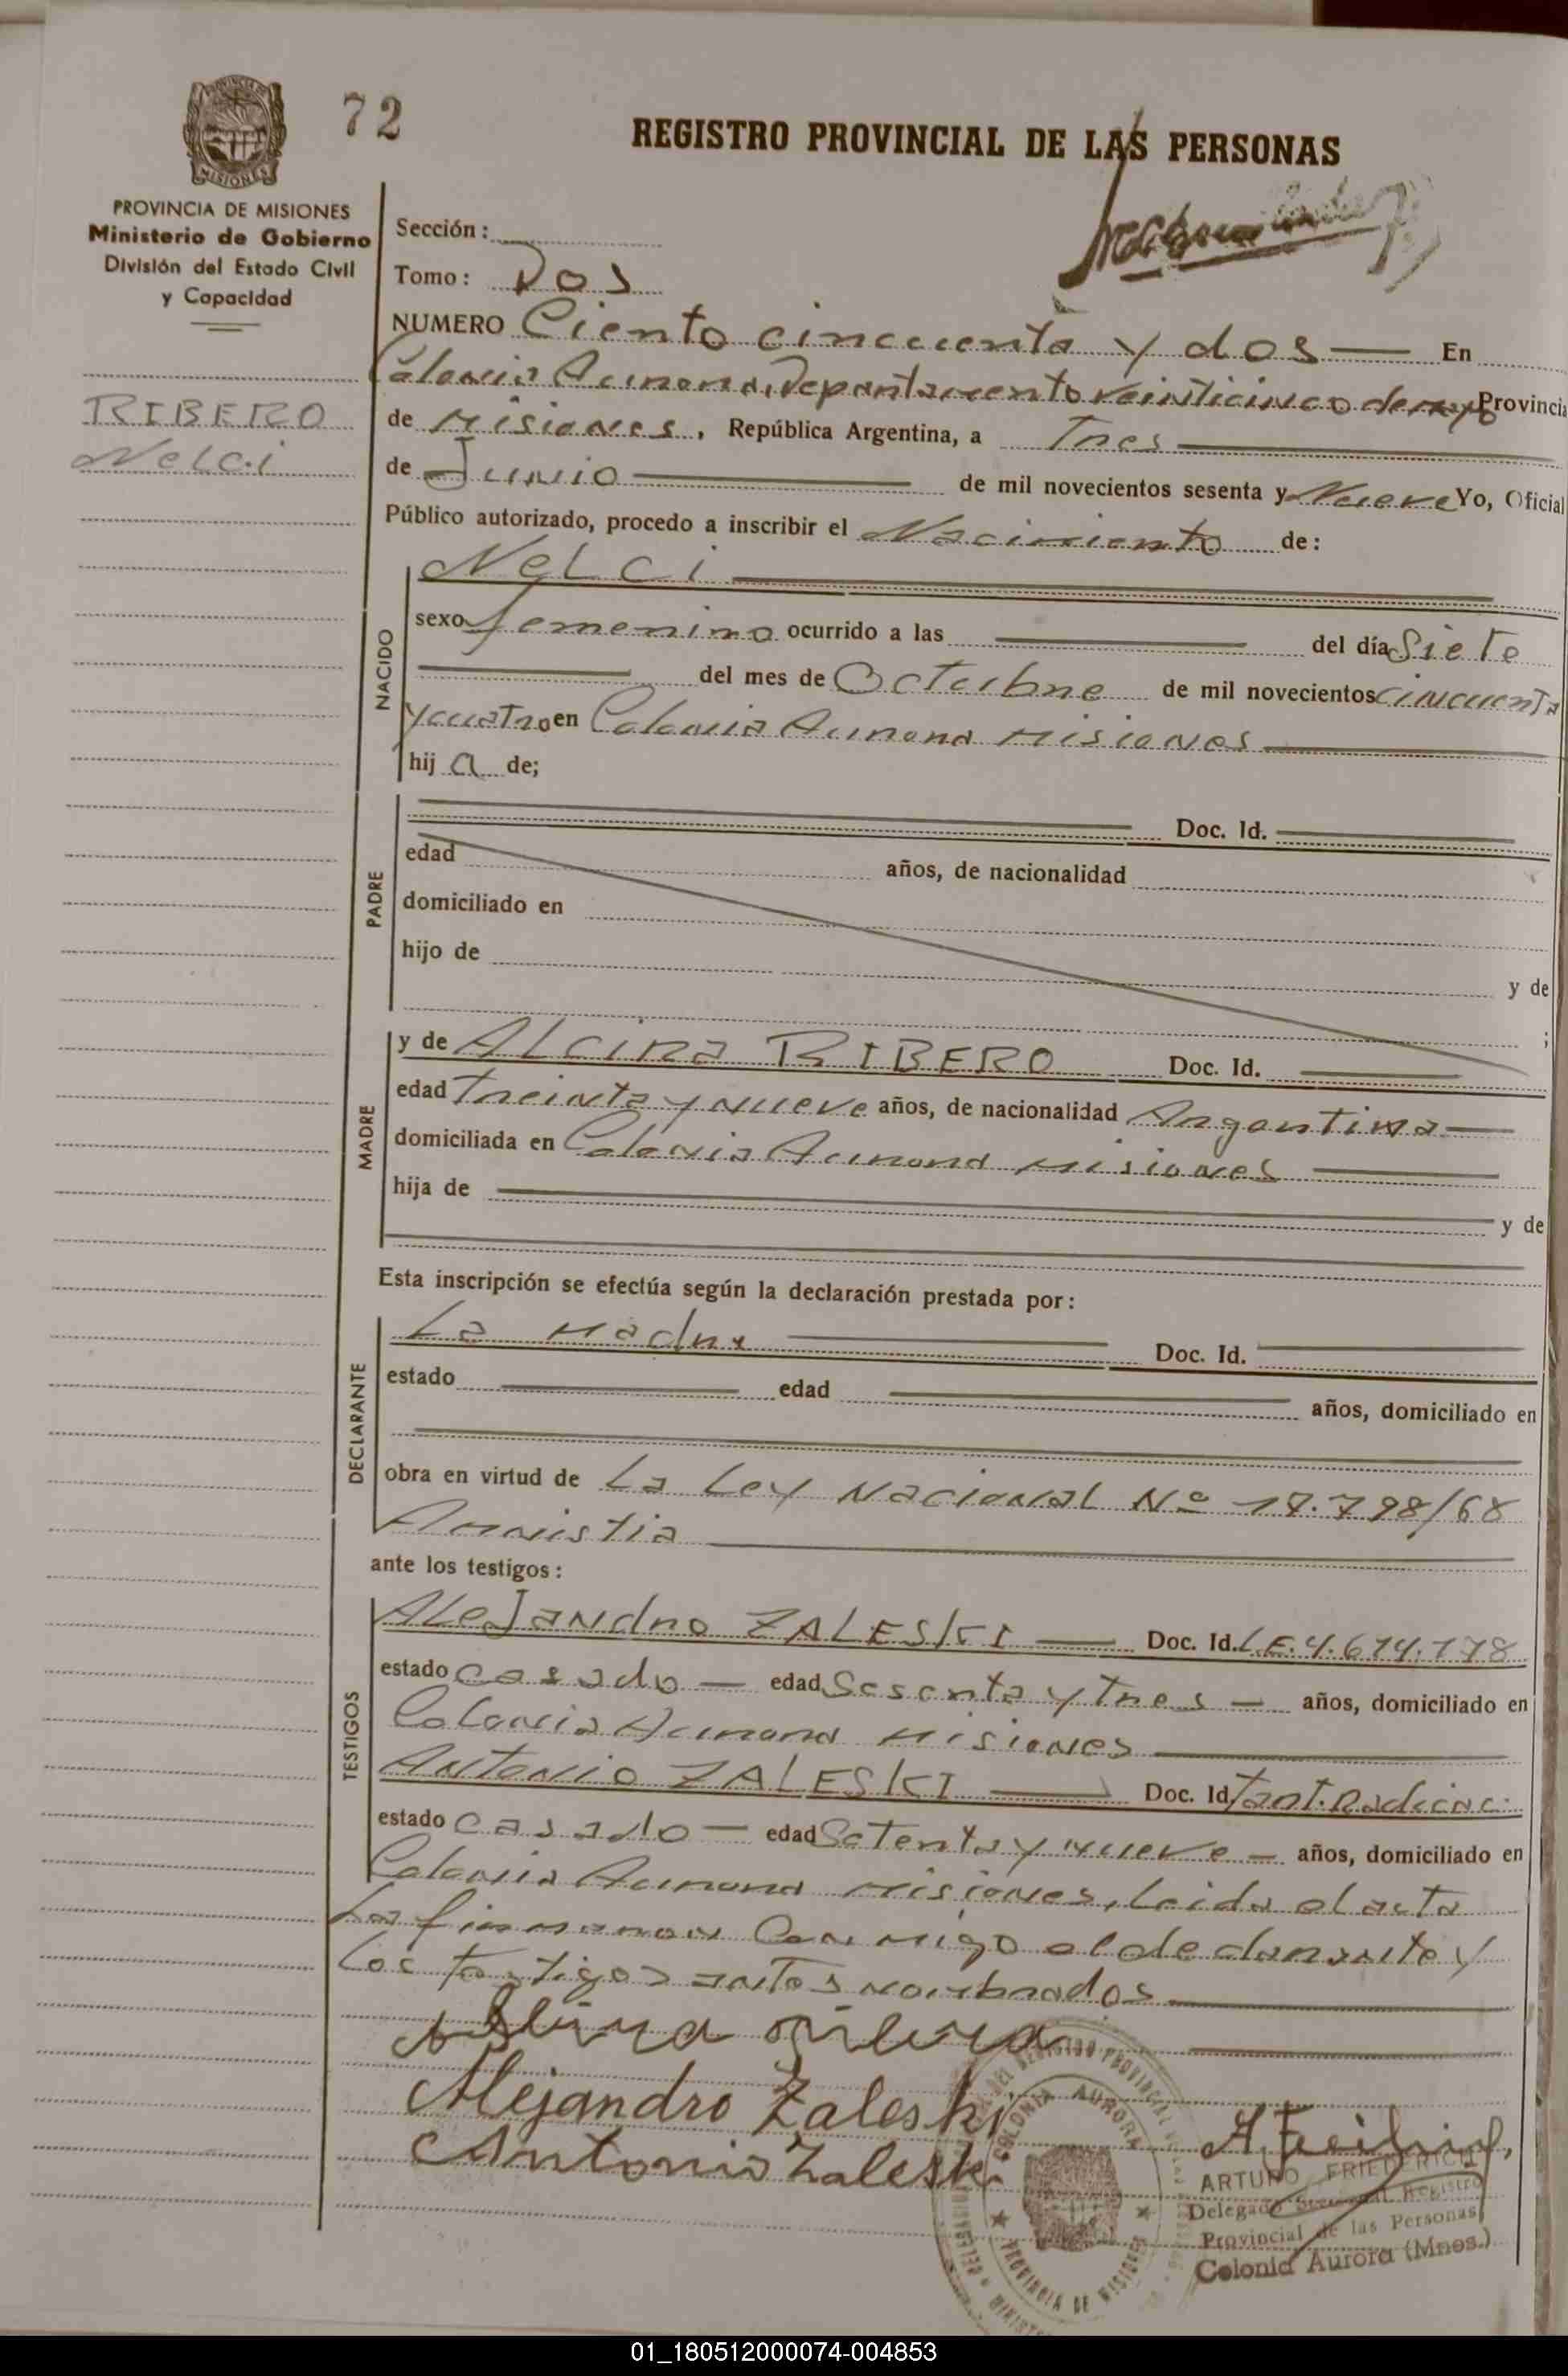 72
REGISTRO PROVINCIAL DE LAS PERSONAS
PROVINCIA DE MISIONES
Ministerio de Gobierno
División del Estado Civil
y Capacidad
RIBERO
Nelci
Sección:
Tomo: Dos
NUMERO Ciento cincuenta y dos En
Colonia Aurora, Departamento veinticinco de mayo Provincia
de Misiones, República Argentina, a Tres
de Junio de mil novecientos sesenta y Nueve Yo, Oficial
Público autorizado, procedo a inscribir el Nacimiento de:
NACIDO
Nelci
sexo femenino ocurrido a las del día Siete
del mes de Octubre de mil novecientos cincuenta
y cuatro en Colonia Aurora Misiones
hij a de;
PADRE
Doc. Id.
edad años, de nacionalidad
domiciliado en
hijo de y de
;
MADRE
y de Alcira RIBERO Doc. Id.
edad treinta y nueve años, de nacionalidad Argentina
domiciliada en Colonia Aurora Misiones
hija de y de
Esta inscripción se efectúa según la declaración prestada por:
DECLARANTE
La Madre Doc. Id.
estado edad años, domiciliado en
obra en virtud de La Ley Nacional Nº 17.798/68
Amnistia
ante los testigos:
TESTIGOS
Alejandro ZALESKI Doc. Id. L.E. 4.674.178
estado casado edad Sesenta y tres años, domiciliado en
Colonia Aurora Misiones
Antonio ZALESKI Doc. Id
estado casado edad Setenta y nueve años, domiciliado en
Colonia Aurora Misiones, Leida el acta
La firmaron Conmigo el declarante y
Los testigos antes nombrados
Alejandro Zaleski
Antonio Zaleski
COLONIA AURORA
PROVINCIA DE MISIONES
ARTURO FRIEDERICH
Delegado Seccional Registro
Provincial de las Personas
Colonia Aurora (Mnes.)
01_180512000074-004853